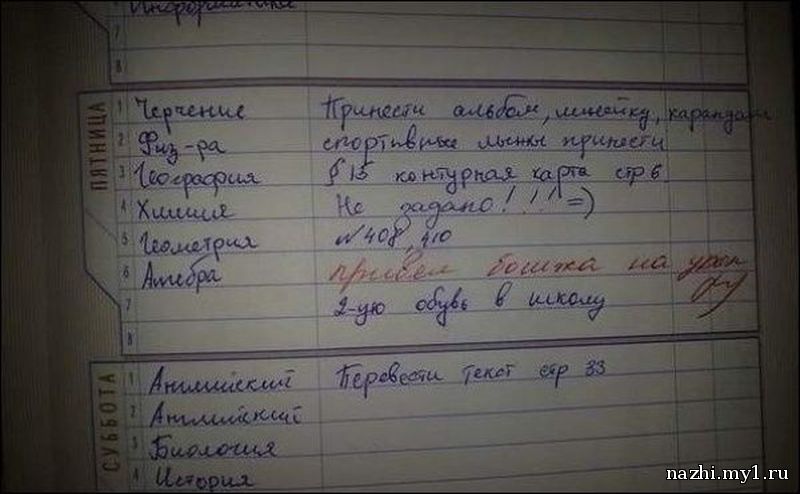 Информатика
7
8
ПЯТНИЦА
1 Черчение Принести альбом, линейку, карандаши
2 Физ-ра спортивные лыжы принести
3 География § 15 контурная карта стр 6
4 Химия Не задано!!!! =)
5 Геометрия №408, 410
6 Алгебра привел бомжа на урок
7 2-ую обувь в школу
8
СУББОТА
1 Английский Перевести текст стр 33
2 Английский
3 Биология
4 История
nazhi.my1.ru